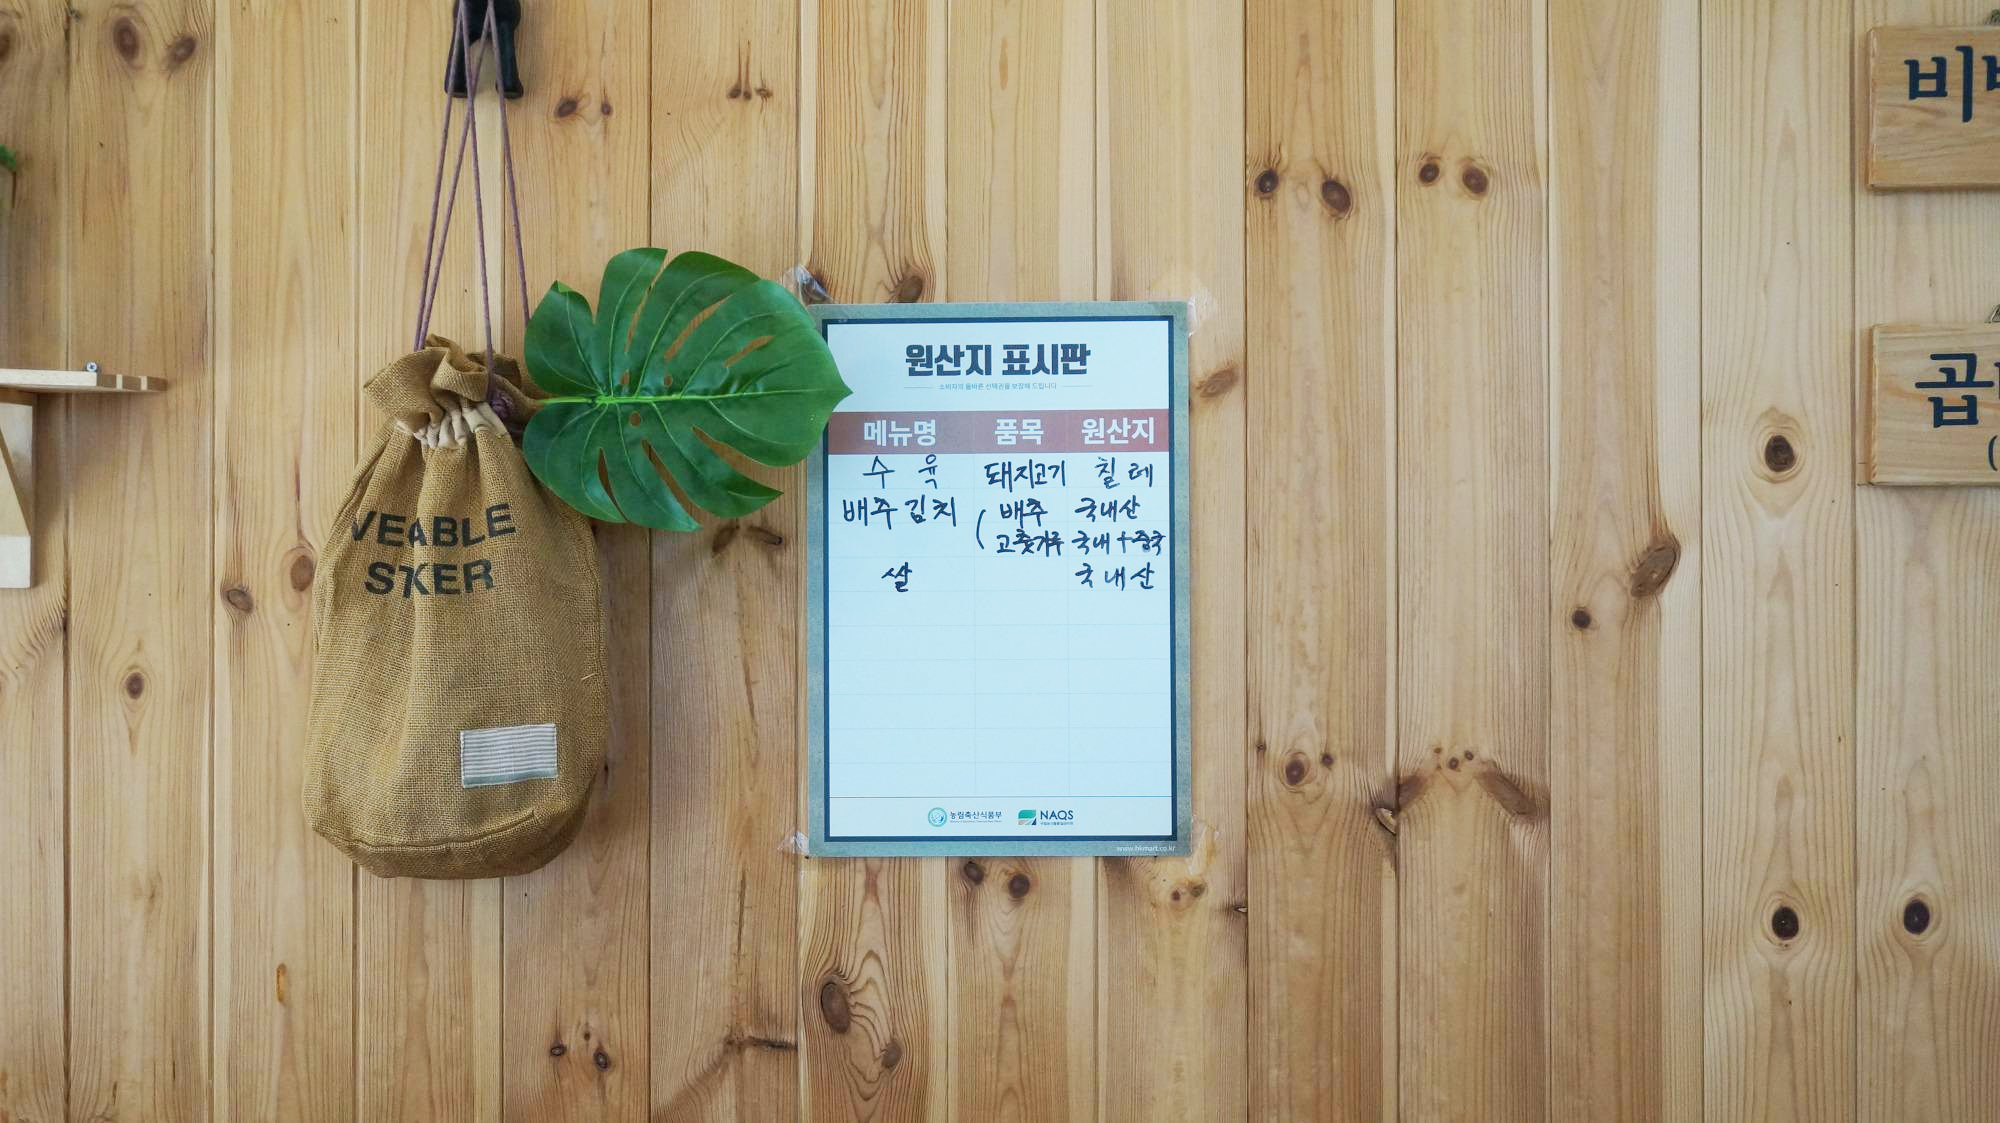 VEABLE
STKER
원산지 표시판
소비자의 올바른 선택권을 보장해 드립니다
메뉴명 품목 원산지
수육 돼지고기 칠레
배추김치 ( 배추 국내산
고춧가루 국내+중국
쌀 국내산
농림축산식품부 NAQS
www.hkmart.co.kr
비
곱
(